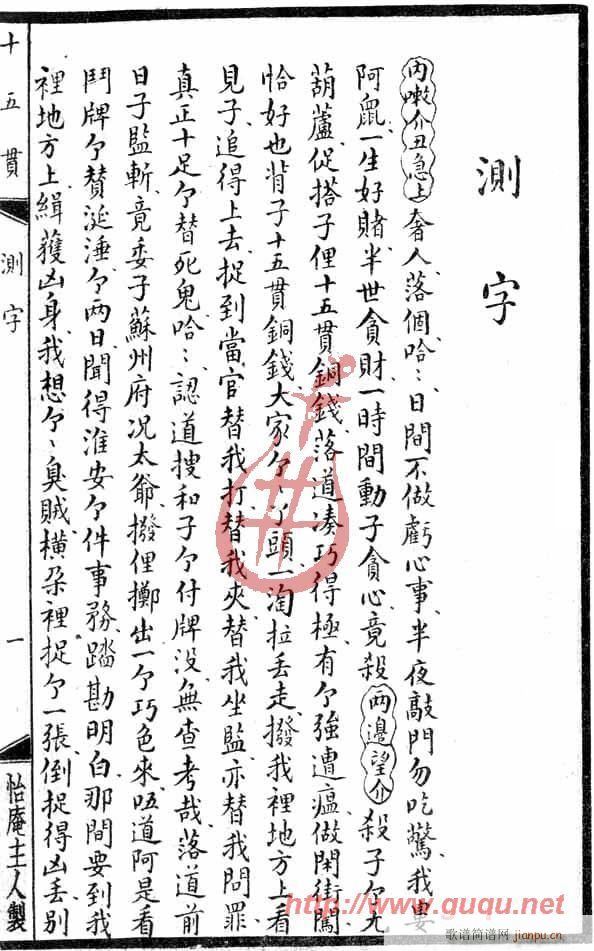 測字
內嗽介丑急上奢人落個哈〻日間不做虧心事半夜敲門勿吃驚我婁
阿鼠一生好賭半世貪財一時間動子貪心竟殺兩邊望介殺子个尤
葫蘆促搭子俚十五貫銅錢落道湊巧得極有个強遭瘟做閑街闖
恰好也背子十五貫銅錢大家个〻丫頭一淘拉丟走撥我裡地方上看
見子追得上去捉到當官替我打替我夾替我坐監亦替我問罪
真正十足个替死鬼哈〻認道搜和子个付牌没無查考哉落道前
日子監斬竟委子蘇州府况太爺撥俚擲出一个巧色來唔道阿是看
鬥牌个贊涎唾个兩日聞得淮安个件事務踏勘明白那間要到我
裡地方上緝獲凶身我想个〻臭賊橫朶裡捉个一張倒捉得凶丟別
十五貫
測字
一
怡庵主人製
www.ququ.net
www.ququ.net
歌谱简谱网
jianpu.cn